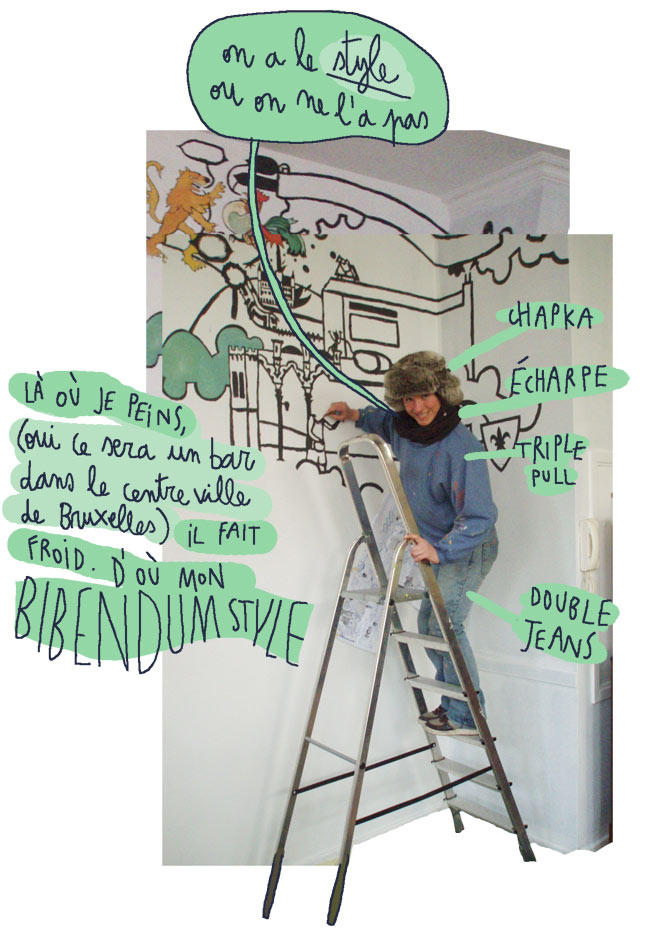 on a le style
ou on ne l'a pas
CHAPKA
ÉCHARPE
TRIPLE
PULL
LÀ OÙ JE PEINS,
(oui ce sera un bar
dans le centre ville
de Bruxelles) iL FAIT
FROID. D'OÙ MON
BIBENDUM STYLE
DOUBLE
JEANS